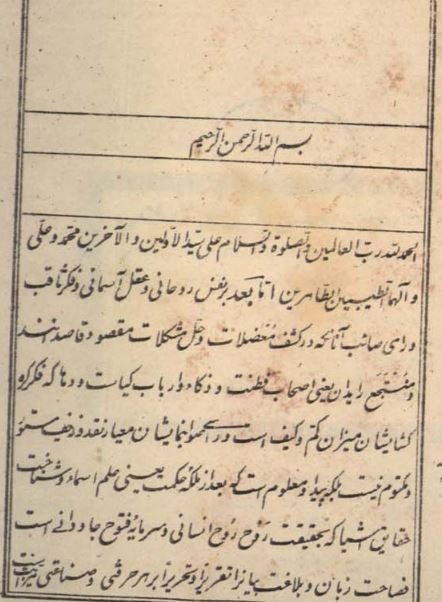 بسم الله الرحمن الرحیم
الحمد لله رب العالمین و الصلوة و السلام علی سید الاولین و الآخرین محمد و علی
و آلهما الطیبین الطاهرین اما بعد بر نفس روحانی و عقل آسمانی و فکر ثاقب
و رای صائب آنانکه در کشف معضلات و حل مشکلات مقصود قاصدند
و منتجع رایدان یعنی اصحاب فطنت و ذکاء و ارباب کیاست و دها که فکر رو
کشایشان میزان کم و کیف است و رای نمایشان معیار نقد و زیف مستور
و مکتوم نیست بلکه پیدا و معلوم است که بعد از ملکه حکمت یعنی علم اسماء و شناخت
حقایق اشیا که بحقیقت روح روح انسانی و سرمایه فتوح جاودانی است
فصاحت زبان و بلاغت بیان را تقریرا و تحریرا بر هر حرفتی و صناعتی